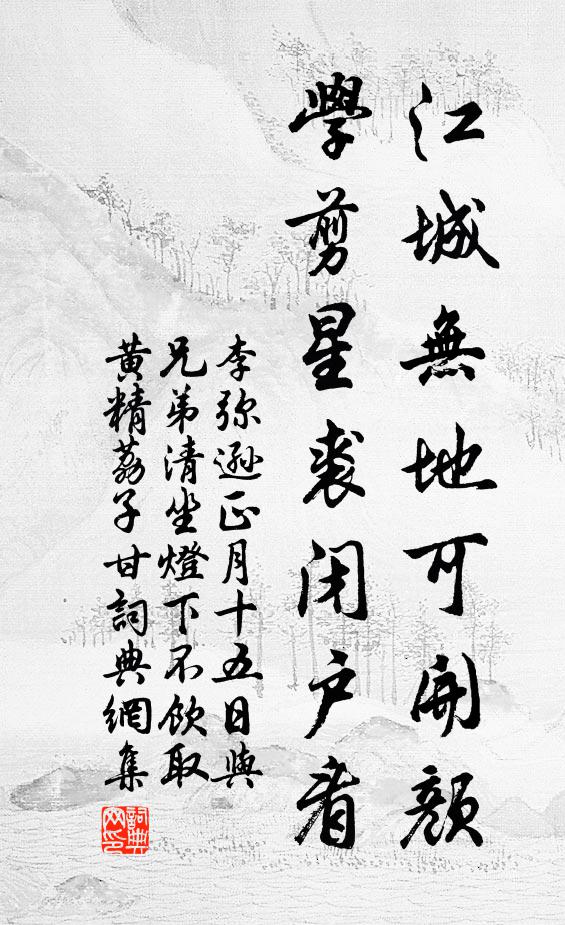 江城無地可開顏
學剪星裘閉戶看
李弥遜正月十五日與
兄弟清坐燈下不飲取
黃精荔子甘詞典網集
詞典
网印